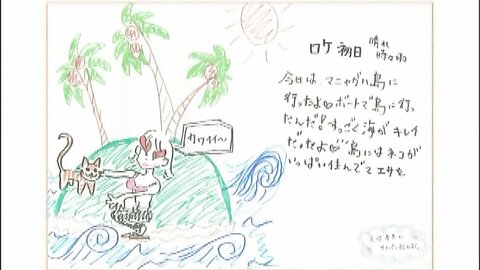 ロケ初日 晴れ時々雨
今日は マニャガハ島に
行ったよ♡ボートで島に行っ
たんだ!すっごく海が キレイ
だったよ♡島にはネコが
いっぱい住んでて エサを
カワイイ〜